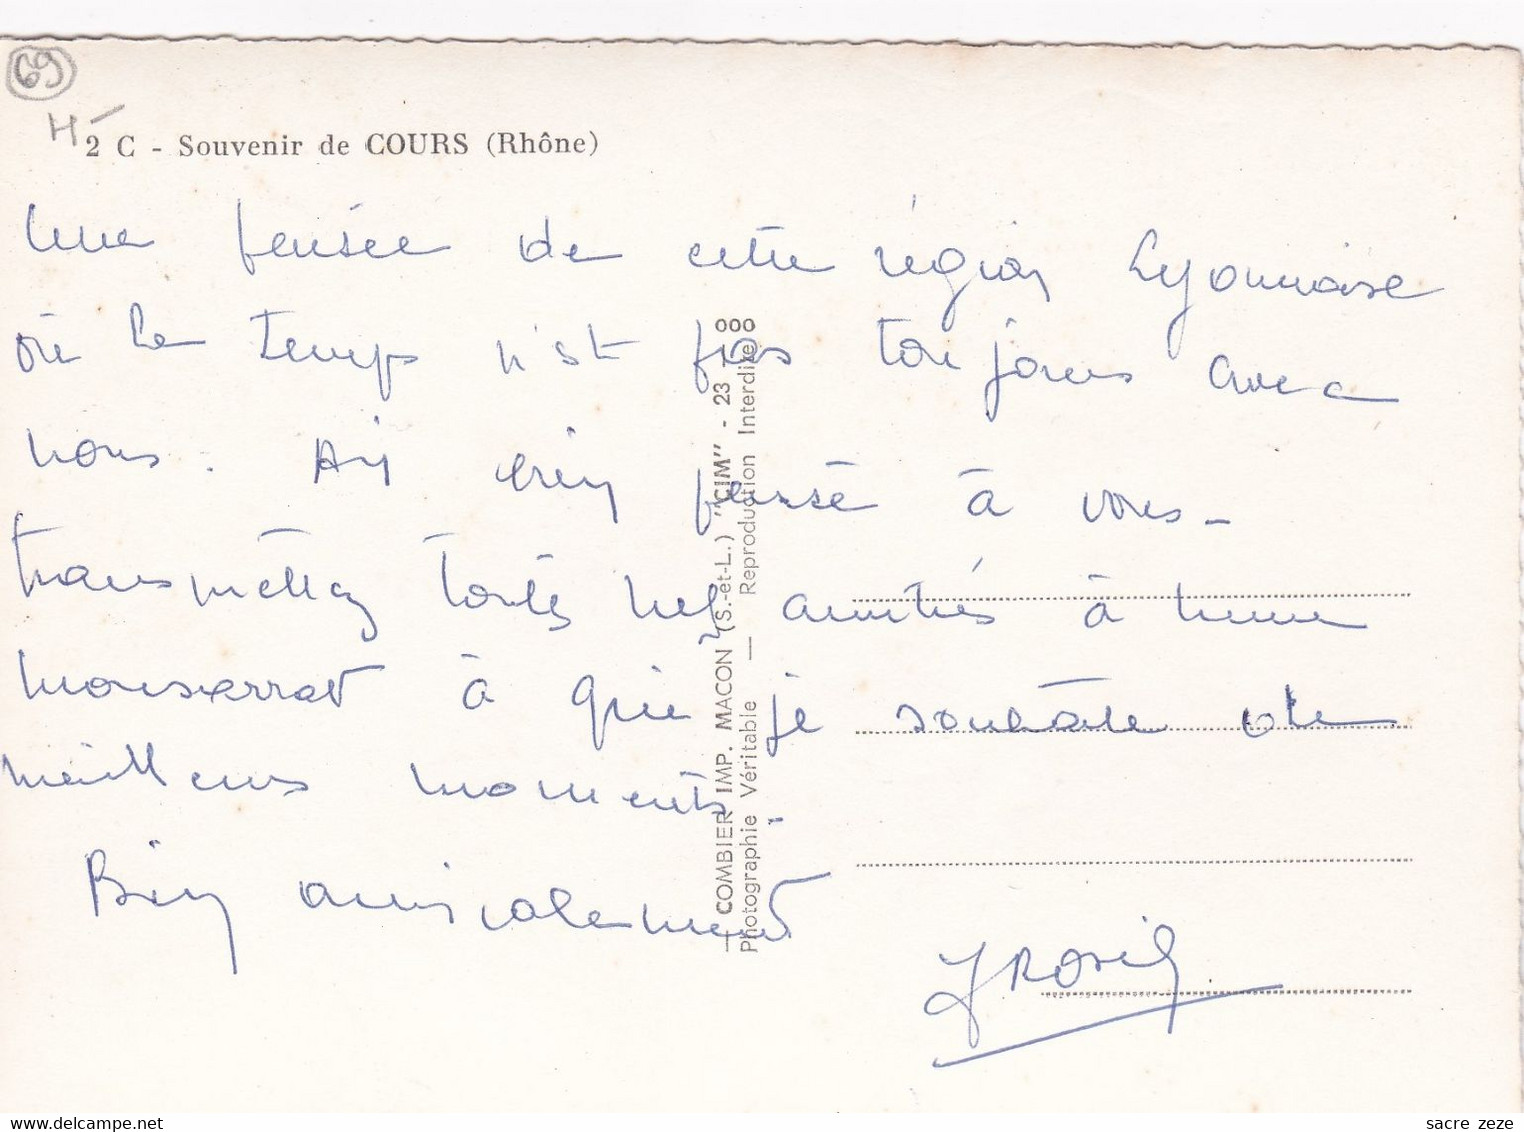 69
H-
2 C - Souvenir de COURS (Rhône)
Une pensée de cette région Lyonnaise
où le temps n'est pas toujours avec
nous. Ai bien pensé à vous -
transmettez toutes mes amitiés à Mme
Monserrat à qui je souhaite de
meilleurs moments.
Bien amicalement
— COMBIER IMP. MACON (S.-et-L.) "CIM" - 23 T 00
Photographie Véritable — Reproduction Interdite 800
sacre zeze